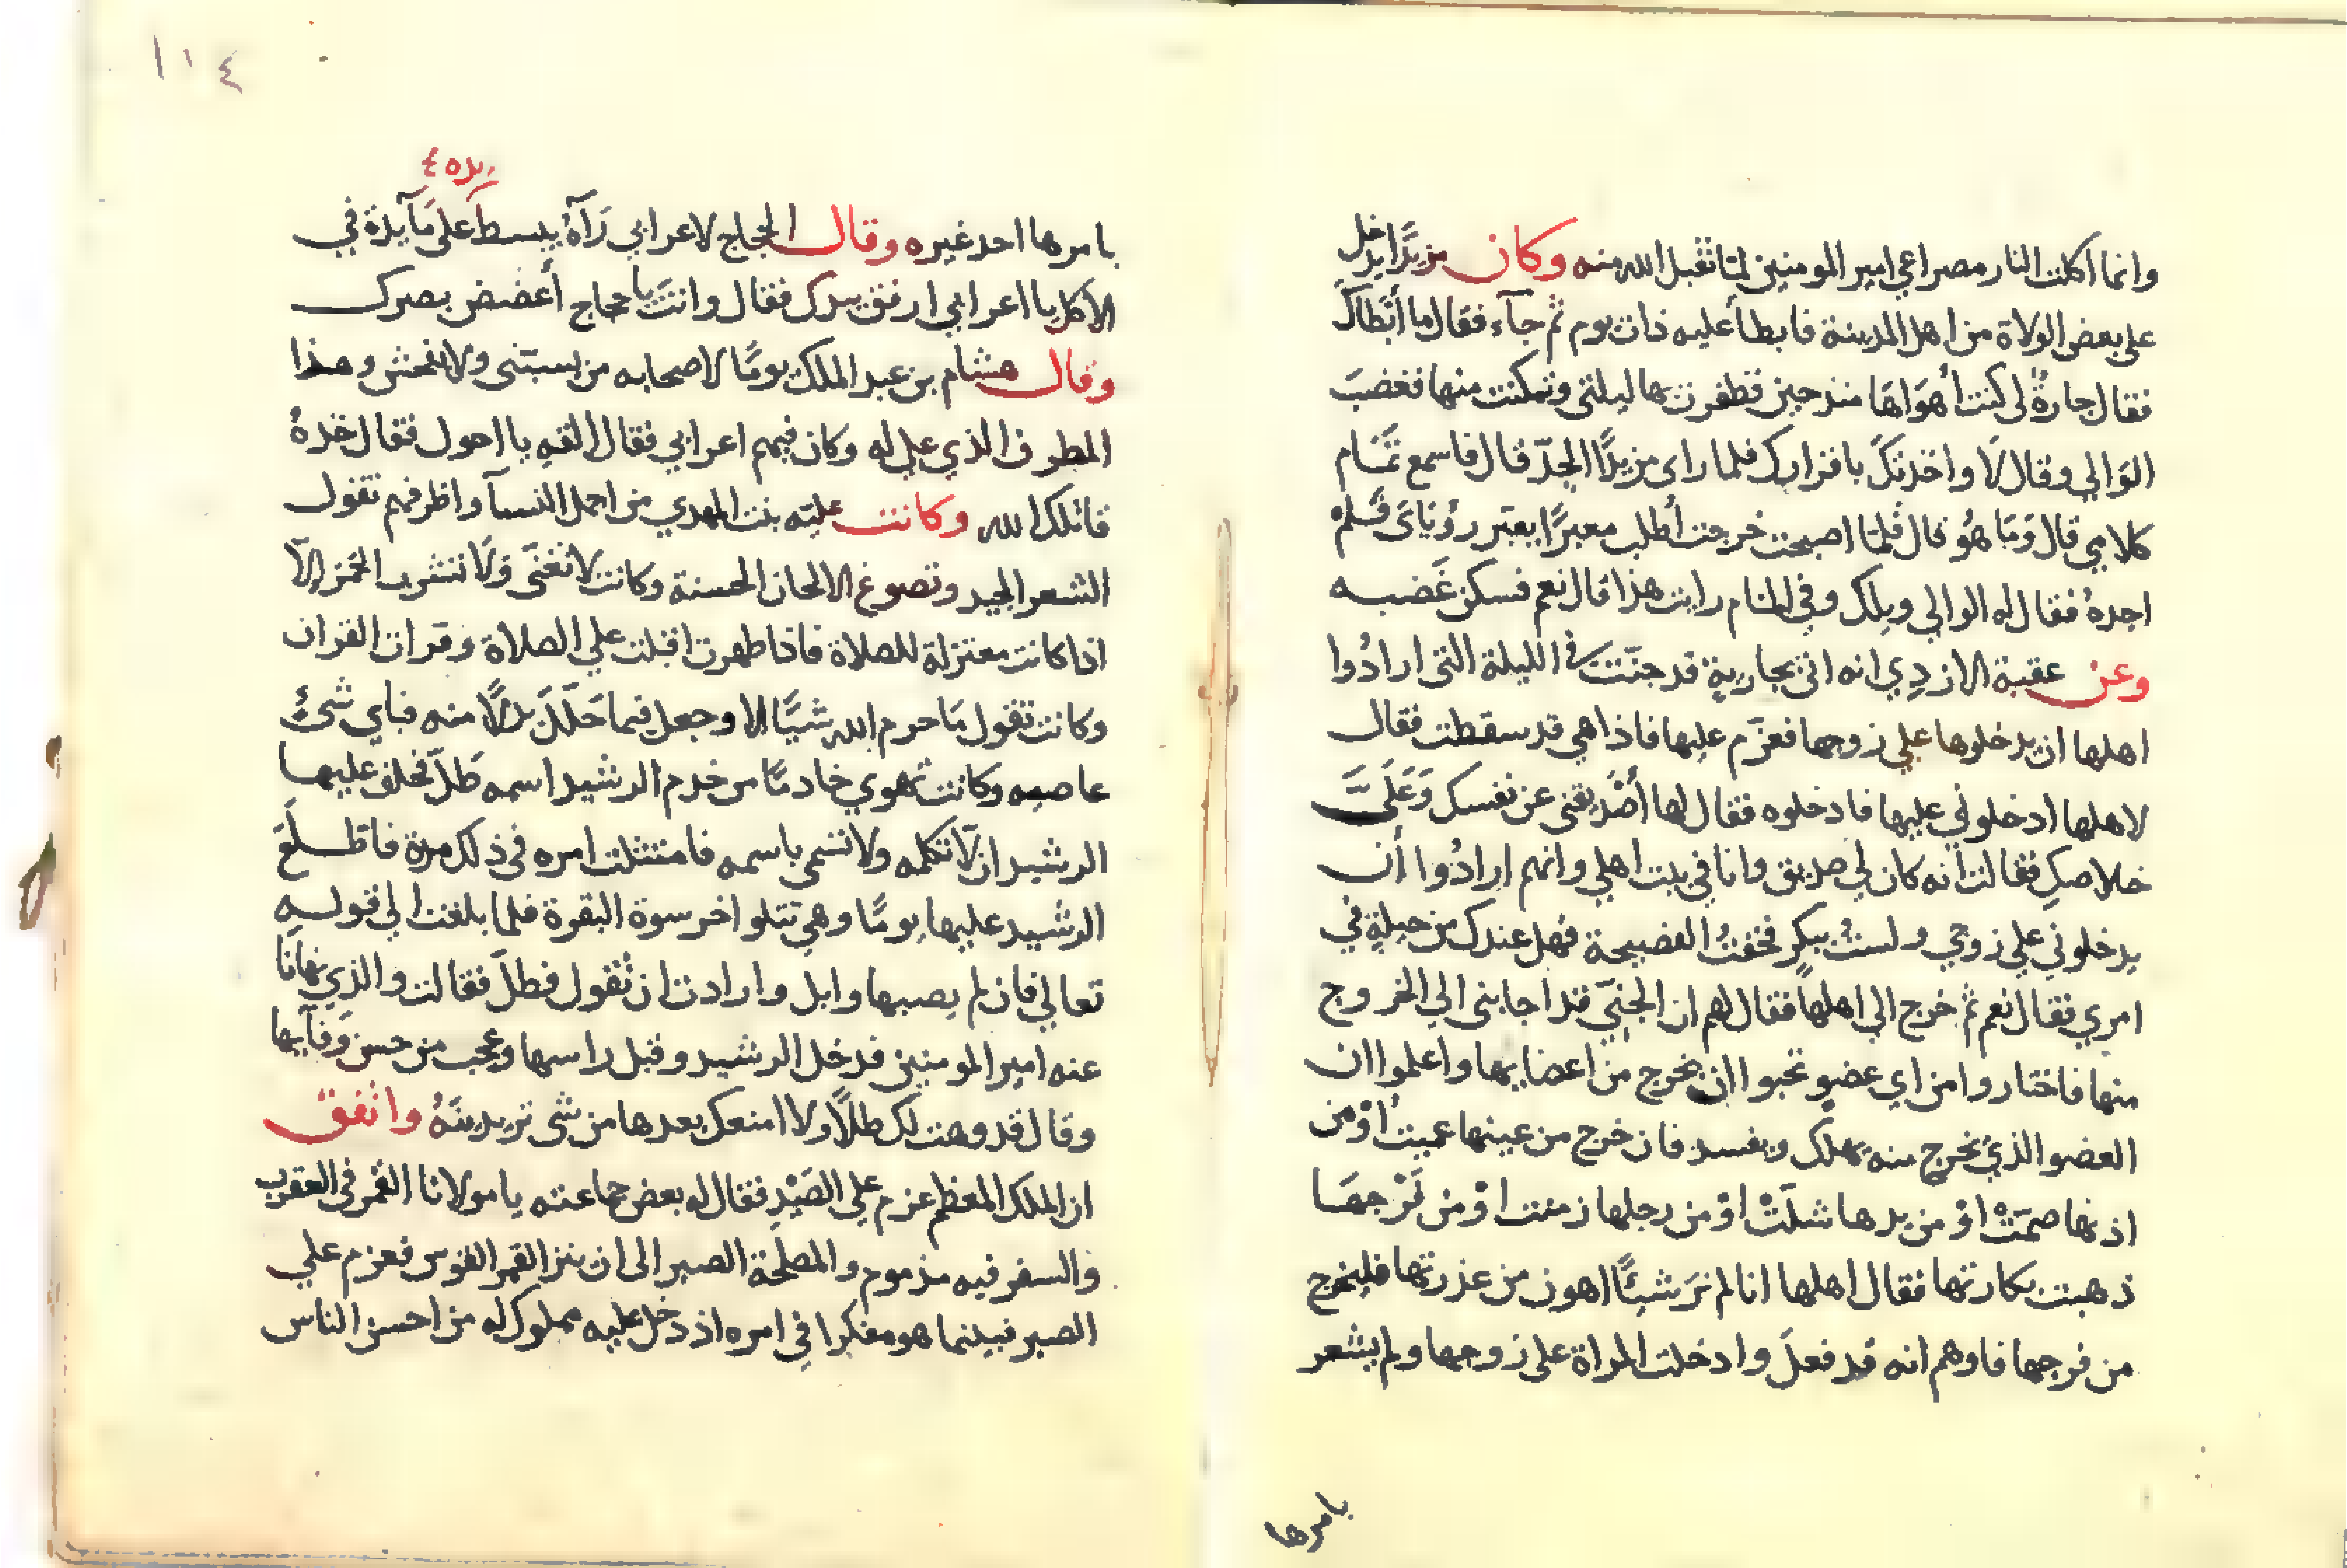 وانما اكلت النار مصراعي امير المومنين لما تقبل الله منه وكان مزبدًا يدخل
على بعض الولاة من اهل المدينة فابطا عليه ذات يوم ثم جآء فقال ما أبطاكَ
فقال جارةٌ لي كنت أهوَاهَا منذ حين فظفرت بها ليلتي وتمكنت منها فغضبَ
الوَالي وقال لَا واخذنكَ باقرارك فلما راى مزبدًا الجدّ قال فاسمع تمَام
كلامي قال وَمَا هُو قال فلمّا اصبحت خرجت أطلب معبرًا يعبّر رؤيَاىَ فَلم
اجدهُ فقال له الوالي ويلك وفي المنام رايت هذا قال نعم فسكن غَضبه
وعن عقبة الازدِي انه اتى بجاريةٍ قد جنّت في الليلة التى ارادُوا
اهلها ان يدخلوها علي زوجها فعزّم عليها فاذا هي قد سقطت فقال
لاهلها ادخلوني عليها فادخلوه فقال لها أصْدِقيني عن نفسك وَعَلَىَّ
خلاصكِ فقالت انه كان لي صديق وانا في بيت اهلي وانهم ارادُوا أن
يدخلوني علي زوجي ولستُ ببكرٍ فخفتُ الفضيحة فهل عندك من حيلةٍ في
امري فقال نعم ثم خرج الي اهلها فقال لهم ان الجنىّ قد اجابنى الي الخروج
منها فاختاروا من اي عضوٍ تحبوا ان يخرج من اعضايها واعلموا ان
العضو الذي يخرج منه يهلك ويفسد فان خرج من عينها عميت اوْ من
اذنها صمَتْ اوْ من يدها شلّتْ اوْ من رجلها زمنت اوْ من فَرْجهَا
ذهبت بكارتها فقال اهلها انا لم نرَ شيئًا اهون من عذرتها فليخرج
من فرجها فاوهم انه قد فعلَ وادخلت المراة على زوجها ولم يشعر
بامرها
١١٤
يده ٤
بامرها احد غيره وقال الحجاج لاعرابي رَآهُ يبسط على مَآيدة في
الاكل يا اعرابي ارفق بيدك فقال وانتَ يا حجاج أغضض بصرك
وقال هشام بن عبد الملك يومًا لاصحابه من يسبّنى ولا يفحش وهذا
المطرف الذي علي له وكان فيهم اعرابي فقال القهِ يا احول فقال خذهُ
قاتلك الله وكانت عليّه بنت المهدي من اجمل النسآ واظرفهم تقول
الشعر الجيد وتصوغ الالحان الحسنة وكانت لا تغنّى وَلَا تشرب الخمر الّا
اذا كانت معتزلة للصلاة فاذا طهرت اقبلت علي الصلاة وقراة القران
وكانت تقول مَا حرم الله شيًا الا وجعل فيما حَلّلَ بدلًا منه فباي شئٍ
عاصيه وكانت تهوي خادمًا من خدم الرشيد اسمه طَلّ فحلف عليها
الرشيد ان لّا تكلمه ولا تسمى باسمه فامتثلت امره في ذلك مدة فاطّلعَ
الرشيد عليها يومًا وهي تتلو اخر سوة البقرة فلما بلغت الي قوله
تعالي فان لم يصبها وابل وارادت ان تُقول فطلّ فقالت والذي نهانا
عنه امير المومنين فدخل الرشيد وقبل راسها وعجب من حسن وَفآيها
وقال قد وهبت لك طلًّا ولا امنعك بعدها من شى تريدينَهُ واتفق
ان الملك المعظم عزم علي الصَيْدِ فقال له بعض جماعته يا مولانا القمر في العقرب
والسفر فيه مذموم والمصلحة الصبر الى ان ينزل القمر القوس فعزم علي
الصبر فبينما هو مفكرا في امره اذ دخل عليه مملوك له من احسن الناس